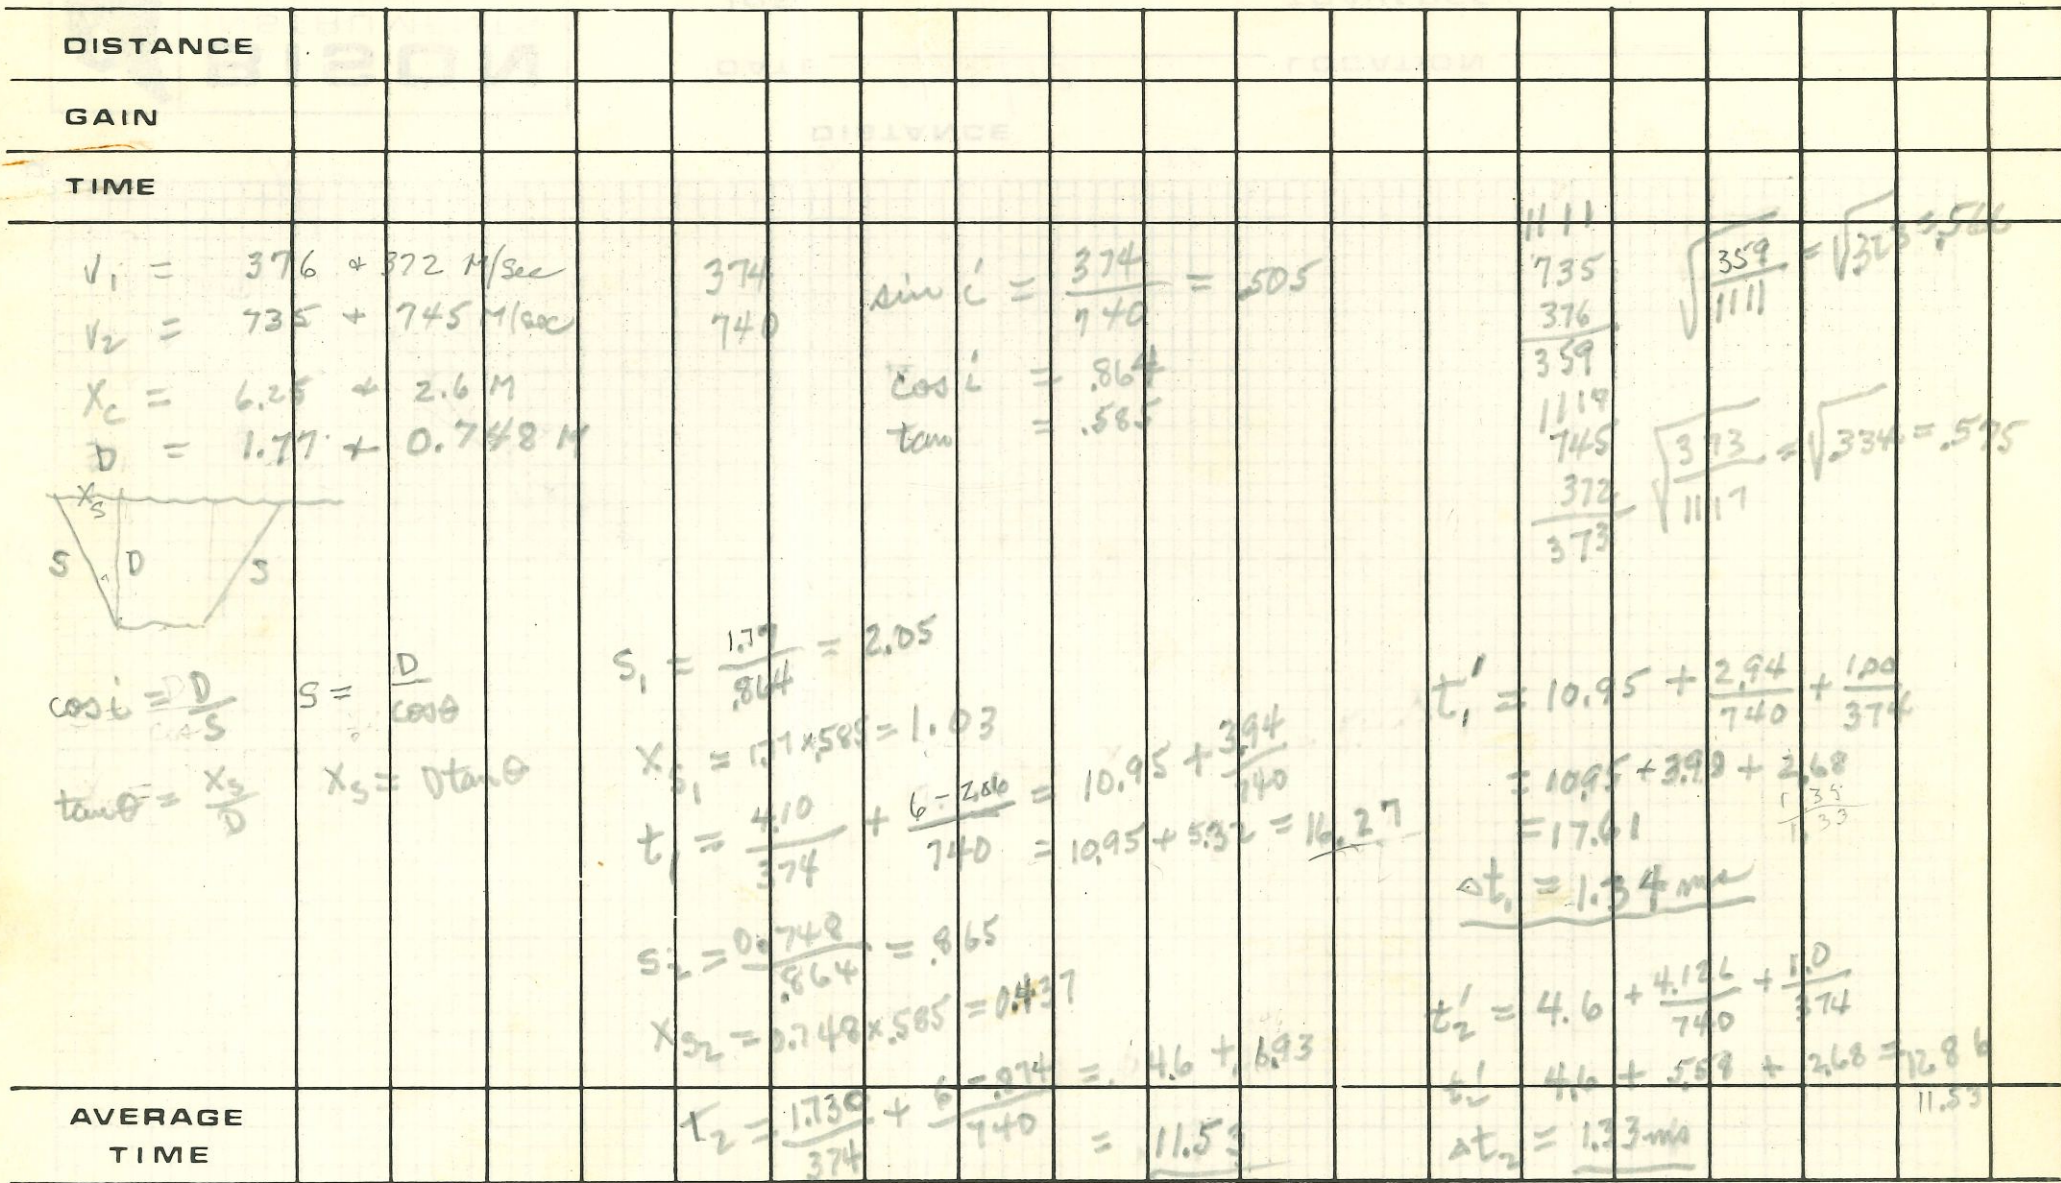 DISTANCE
GAIN
TIME
V₁ = 376 & 372 M/sec
V₂ = 735 + 745 M/sec
Xc = 6.25 & 2.6 M
D = 1.77 + 0.748 M
374
740
sin i = 374/740 = .505
cos i = .864
tan = .585
1111
735
376
359
√(359/1111) = √.323 = .566
1118
745
372
373
√(373/1117) = √.334 = .575
Xs
S D S
cos i = D/S S = D/cosθ
tanθ = Xs/D Xs = D tanθ
S₁ = 1.77/.864 = 2.05
Xs₁ = 1.77 x .585 = 1.03
t₁ = 4.10/374 + (6 - 2.06)/740 = 10.95 + 3.94/740
= 10.95 + 5.32 = 16.27
S₂ = 0.748/.864 = .865
Xs₂ = 0.748 x .585 = 0.437
T₂ = 1.730/374 + (6 - .874)/740 = 4.6 + 6.93
= 11.53
t₁' = 10.95 + 2.94/740 + 1.00/374
= 10.95 + 3.98 + 2.68
= 17.61
Δt₁ = 1.34 ms
t₂' = 4.6 + 4.126/740 + 1.0/374
t₂' 4.6 + 5.58 + 2.68 = 12.86
11.53
Δt₂ = 1.33 ms
AVERAGE
TIME